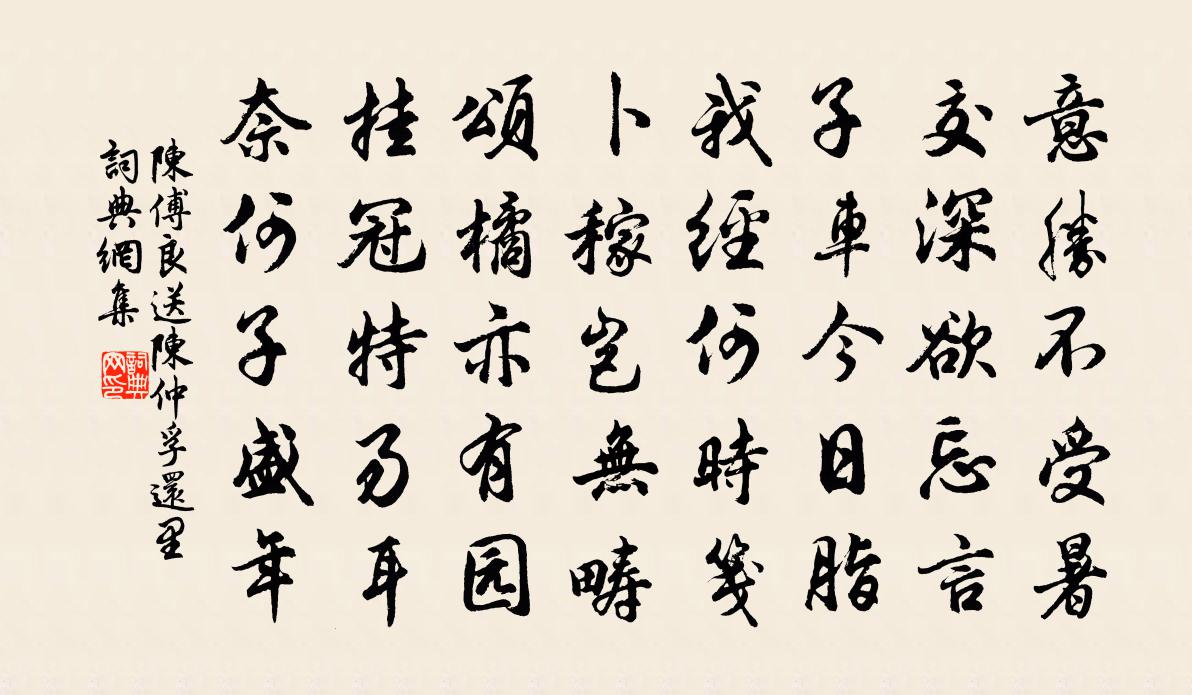 意勝不受暑
交深欲忘言
子車今日脂
我經何時箋
卜稼豈無疇
頌橘亦有园
挂冠特易耳
奈何子盛年
陳傅良送陳仲孚還里
詞典網集
詞典网印